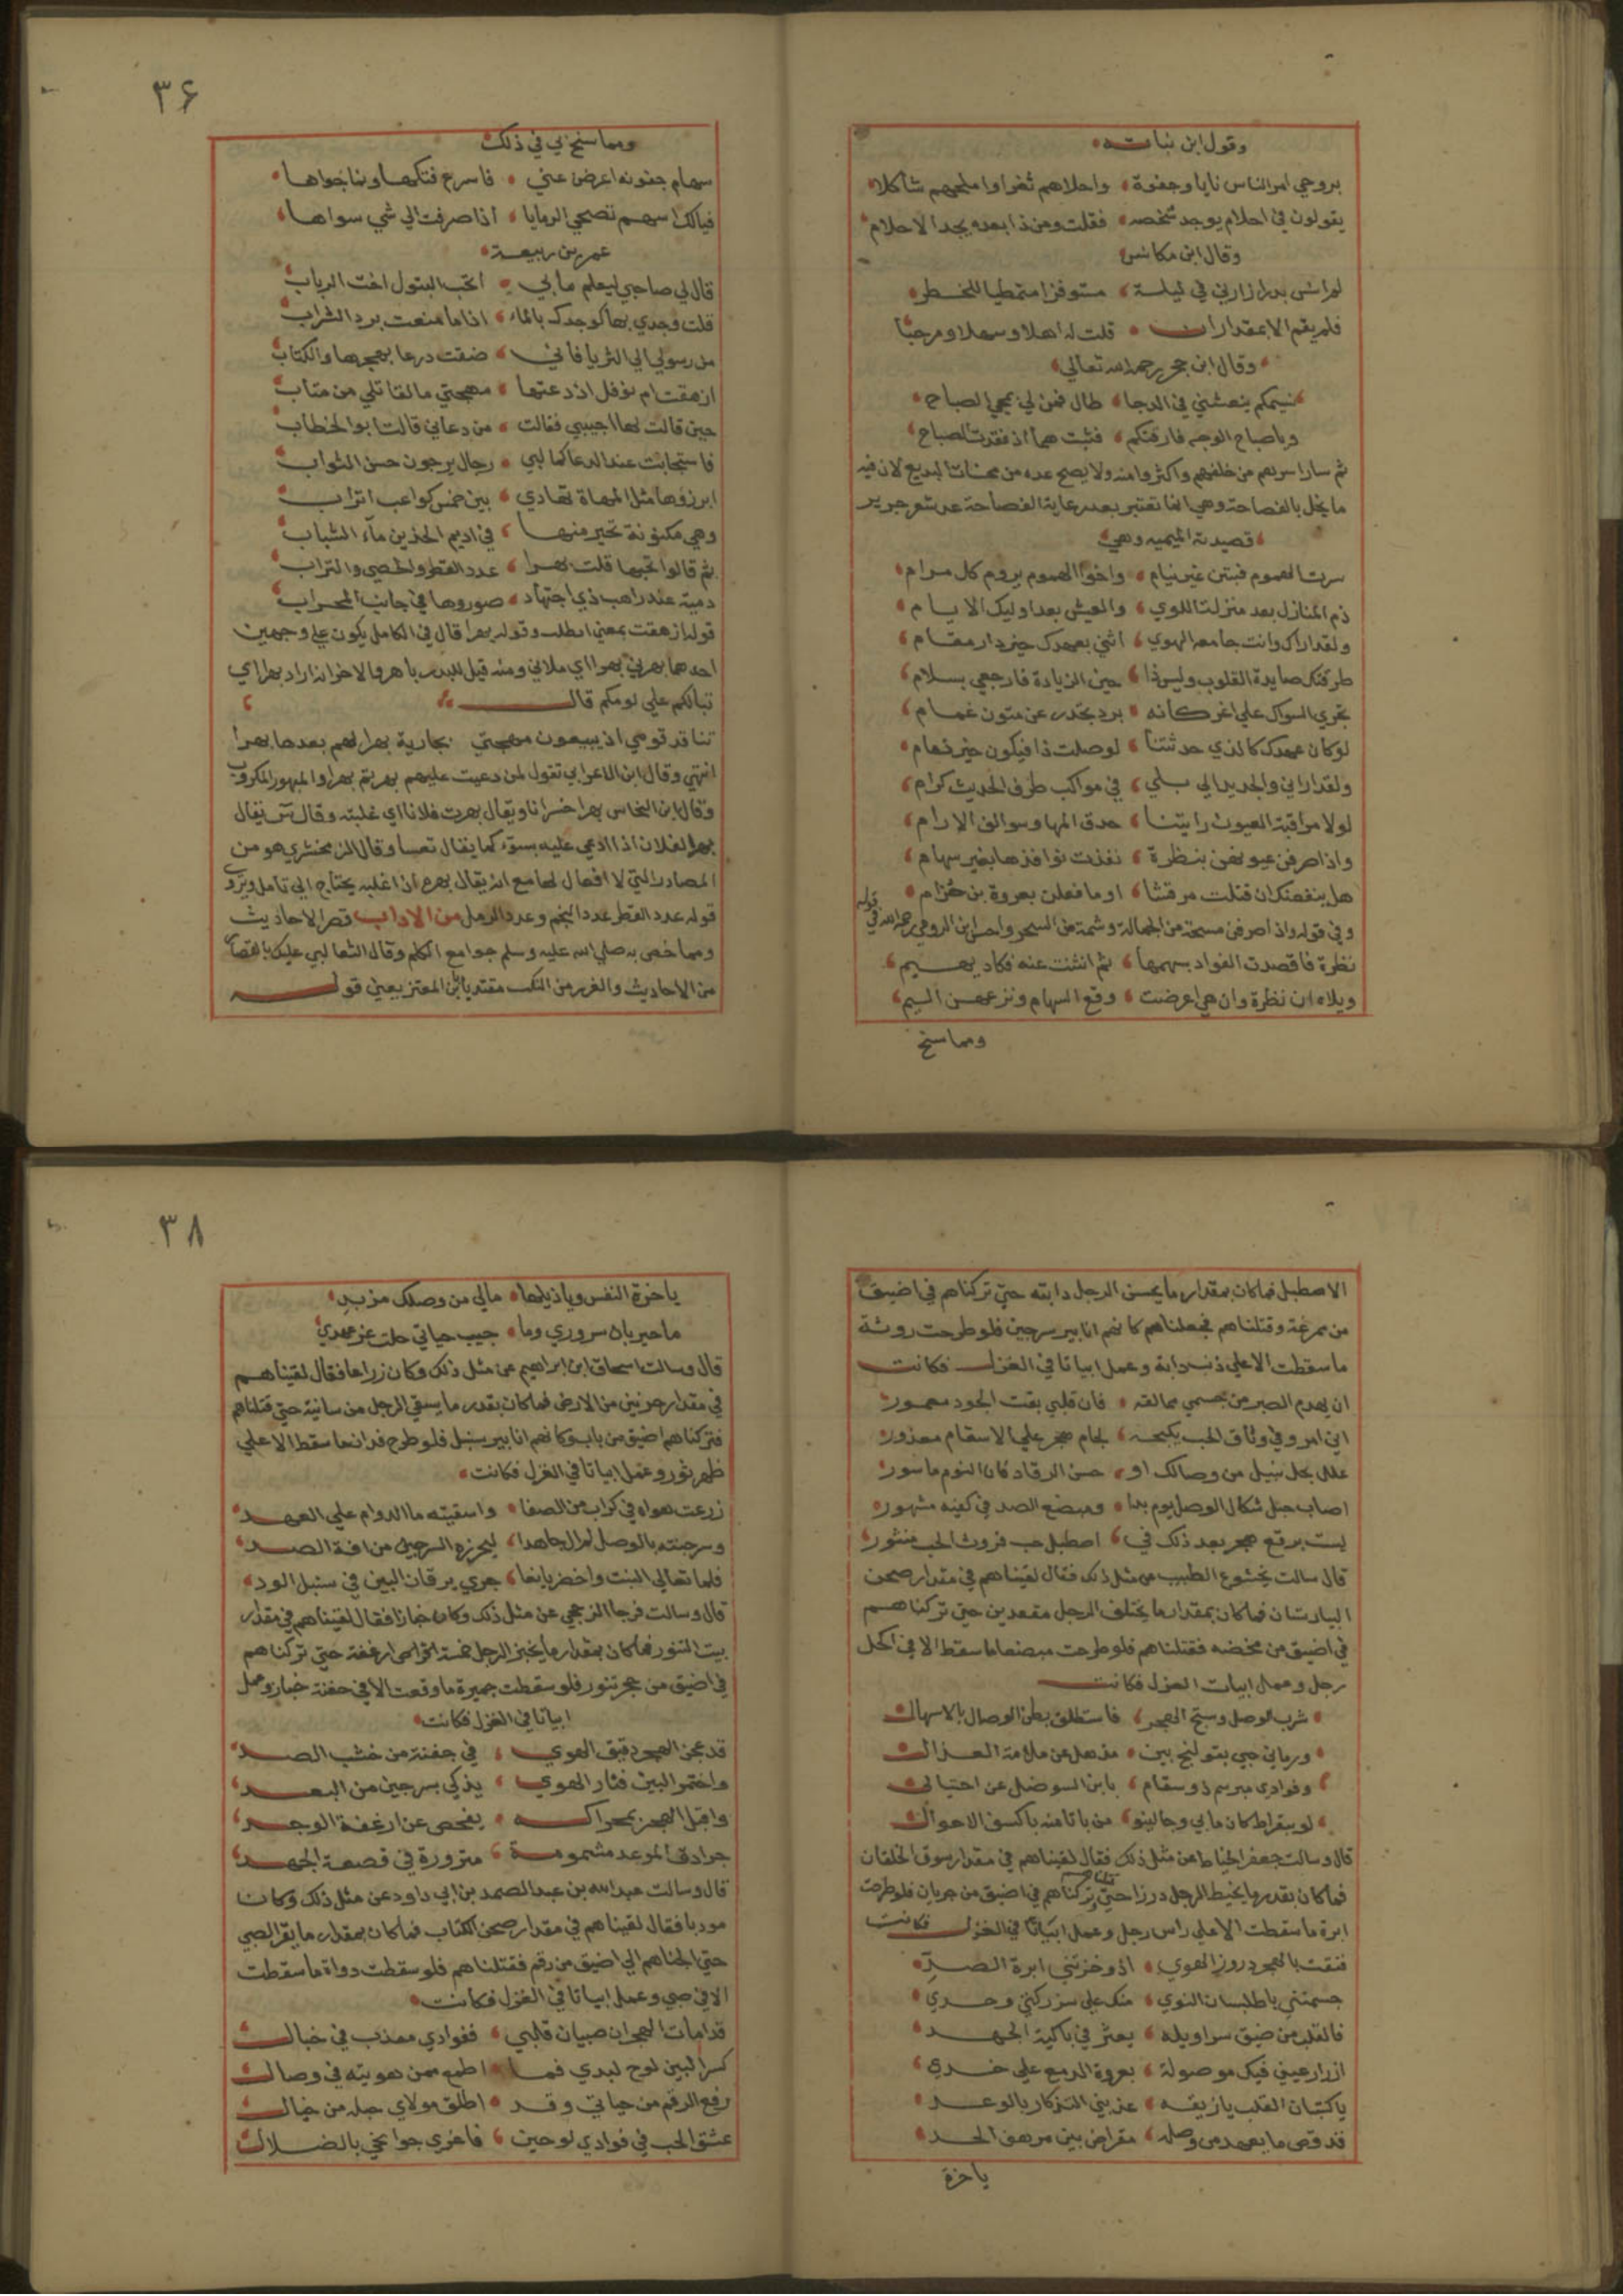 وقول ابن نباته
بروحي امر الناس نايا وجفوة واحلاهم ثغرا واملحهم شكلا
يقولون في احلام يوجد شخصه فقلت ومن ذا بعده يجد الاحلام
وقال ابن مكانس
لم انس بدرا زارني في ليلة مستوفزا متمطيا للخطر
فلم يقم الا بمقدار ان قلت له اهلا وسهلا ومرحبا
وقال ابن حجر رحمه الله تعالي
نسيمكم ينعشني في الدجا طال فمن لي بمجي الصباح
وياصباح الوجه فارقتكم فشبت هما اذ فقدت الصباح
ثم سار اسرهم من خلفهم واكثروا منه ولا يصح عده من محسنات البديع لان فيه
ما يخل بالفصاحة وهي انما تعتبر بعد رعاية الفصاحة من شعر جرير
قصيدته الميميه وهي
سرت الهموم فبتن غير نيام واخوا الهموم يروم كل مرام
ذم المنازل بعد منزلت اللوي والعيش بعد اوليك الايام
ولقد اراك وانت جامعه الهوي اثني بعهدك خير دار مقام
طرقتك صايدة القلوب وليس ذا حين الزيادة فارجعي بسلام
تجري السواك علي اغر كانه برد تحدر عن متون غمام
لو كان عهدك كالذي حدثتنا لوصلت ذا فيكون خير ذمام
ولقد اراني والجديد الي بلي في مواكب طرف الحديث كرام
لولا مراقبة العيون رايتنا حدق المها وسوالف الارام
واذا صرفن عيونهن بنظرة نفذت نوافذها بغير سهام
هل ينفعنك ان قتلت مرقشا او ما فعلن بعروة بن حزام
وفي قوله واذا صرفن مسحة من الجمالة وشمة من السحر واحسن ابن الرومي رحمه الله في قوله
نظرة فاقصدت الفواد بسهمها ثم انثنت عنه فكاد يهيم
ويلاه ان نظرة وان هي اعرضت وقع السهام ونزعهن اليم
ومما سنح
٣٦
ومما سنح لي في ذلك
سهام جفونه اعرض عني فاسرع فتكها ونما جواها
فيالك اسهم تصمي الرمايا اذا صرفت الي شي سواها
عمر بن ربيعة
قال لي صاحبي ليعلم مابي اتحب البتول اخت الرباب
قلت وجدي بها كوجدك بالماء اذا ما منعت برد الشراب
من رسولي الي الثريا فاني ضقت درعا بهجرها والكتاب
ازهقت ام نوفل اذ دعتها مهجتي ما لقاتلي من متاب
حين قالت لها اجيبي فقالت من دعاني قالت ابو الخطاب
فاستجابت عند الدعا كما لبي رجال يرجون حسن الثواب
ابرزوها مثل المهاة تهادي بين خمس كواعب اتراب
وهي مكنونة تحير منها في اديم الخدين ماء الشباب
ثم قالوا تحبها قلت بهرا عدد القطر والحصي والتراب
دمية عند راهب ذي اجتهاد صوروها في جانب المحراب
قوله ازهقت بمعني ابطلت وقوله بهرا قال في الكامل يكون علي وجهين
احدهما بهرني بهرا اي ملاني ومنه قيل للبدر باهر والاخر انه اراد بهرا اي
تبا لكم علي لومكم قال
تفاقد قومي اذ يبيعون مهجتي بجارية بهرا لهم بعدها بهرا
انتهي وقال ابن الاعرابي تقول لمن دعيت عليهم بهرتم بهرا والمبهور المكروب
وقال ابن النحاس بهرا خسرانا ويقال بهرت فلانا اي غلبته وقال س يقال
بهرا لفلان اذا ادعي عليه بسوء كما يقال تعسا وقال الزمخشري هو من
المصادر التي لا افعال لها مع انه يقال بهره اذا غلبه يحتاج الي تامل وتروي
قوله عدد القطر عدد النجم وعدد الرمل من الاداب قصر الاحاديث
ومما خص به صلي الله عليه وسلم جوامع الكلم وقال الثعالبي عليك بالقصار
من الاحاديث والغرر من النكت مقتديا بابن المعتز بعني قوله
الاصطبل فما كان بمقدار ما يحسن الرجل دابته حتي تركناهم في اضيق
من ممرغة وقتلناهم فجعلناهم كانهم انابير سرجين فلو طرحت روثة
ما سقطت الا علي ذنب دابة وعمل ابياتا في الغزل فكانت
ان يهدم الصبر من جسمي معالقه فان قلبي بقت الجود معمور
اني امرو في وثاق الحب يكبحه لجام هجر علي الاسقام معذور
علل بجل نبيل من وصالك او حسن الرقاد فان النوم ماسور
اصاب حبل شكال الوصل يوم بدا ومبضع الصد في كفيه مشهور
لبست برقع هجر بعد ذلك في اصطبل حب فروث الحب منثور
قال سالت بختيشوع الطبيب عن مثل ذلك فقال لقيناهم في مقدار صحن
البيارستان فما كان بمقدار ما يختلف الرجل مقعدين حتي تركناهم
في اضيق من محضنه فقتلناهم فلو طرحت مبضعا ما سقط الا في اكحل
رجل وعمل ابيات الغزل فكانت
شرب الوصل وستج الهجر فاستطلق بطن الوصال بالاسهال
ورماني حبي بقولنج بين مذهل عن ملامة العذال
وفوادي مبرسم ذو سقام يا ابن السو ضل عن احتيالي
لو ببقراط كان مابي وجالينو من باتا منه باكسف الاحوال
قال وسالت جعفر الخياط عن مثل ذلك فقال لقيناهم في مقدار سوق الخلقان
فما كان بقدر ما يخيط الرجل درزا حتي قتلناهم وتركناهم في اضيق من جربان فلو طرحت
ابرة ما سقطت الا علي راس رجل وعمل ابياتا في الغزل فكانت
فتقت بالهجر دروز الهوي اذ وخزتني ابرة الصد
جسمتني ياطيلسان النوي منك علي سزركتي وحدي
فالقلب من ضيق سراويله يعثر في باكية الجهد
ازرار عيني فيك موصولة بعروة الدمع علي خدي
ياكتبان القلب يازيقه عذبني التذكار بالوعد
قد قص ما بعهد من وصله مقراض بين مرهف الحد
ياحزة
٣٨
ياحزة النفس وياذيلها مالي من وصلك من بد
ماجيربان سروري وما جيب حياتي حلت عن عهدي
قال وسالت اسحاق ابن ابراهيم عن مثل ذلك وكان زراعا فقال لقيناهم
في مقدار جزئين من الارض فما كان بقدر ما يسقي الرجل من سانية حتي قتلناهم
فتركناهم اضيق من باب وكانهم انابير سنبل فلو طرح فدان ما سقط الا علي
ظهر ثور وعمل ابياتا في الغزل فكانت
زرعت هواه في كراب من الصفا واسقيته ما الدوام علي العهد
وسرجنته بالوصل لم ال جاهدا ليحرزه السرجين من افة الصد
فلما تعالي النبت واخضر يانعا جري يرقان البين في سنبل الود
قال وسالت فرجا الرخجي عن مثل ذلك وكان خبازا فقال لقيناهم في مقدار
بيت التنور فما كان بمقدار ما يخبز الرجل خمسة ارغفة حتي تركناهم
في اضيق من حجر تنور فلو سقطت جميرة ما وقعت الا في جفنة خباز وعمل
ابياتا في الغزل فكانت
قد عجن الهجر دقيق الهوي في جفنة من خشب الصد
واختمر البين فثار الهوي يذكي بسرجين من البعد
واقبل الهجر بمحراكه يفحص عن ارغفة الوجد
جرادق الموعد مشمومة مثرودة في قصعة الجهد
قال وسالت عبد الله بن عبد الصمد بن ابي داود عن مثل ذلك وكان
مودبا فقال لقيناهم في مقدار صحن الكتاب فما كان بمقدار ما يقرا الصبي
حتي الجاناهم الي اضيق من رقم فقتلناهم فلو سقطت دواة ما سقطت
الا في صبي وعمل ابياتا في الغزل فكانت
قد امات الهجر ان صبيان قلبي ففوادي معذب في خبال
كسر البين لوح لبدي فما اطمع ممن هويته في وصال
رفع الرقم من حياتي وقد اطلق مولاي حبله من خيال
عشق الحب في فوادي لوحين فاغري جوانحي بالضلال